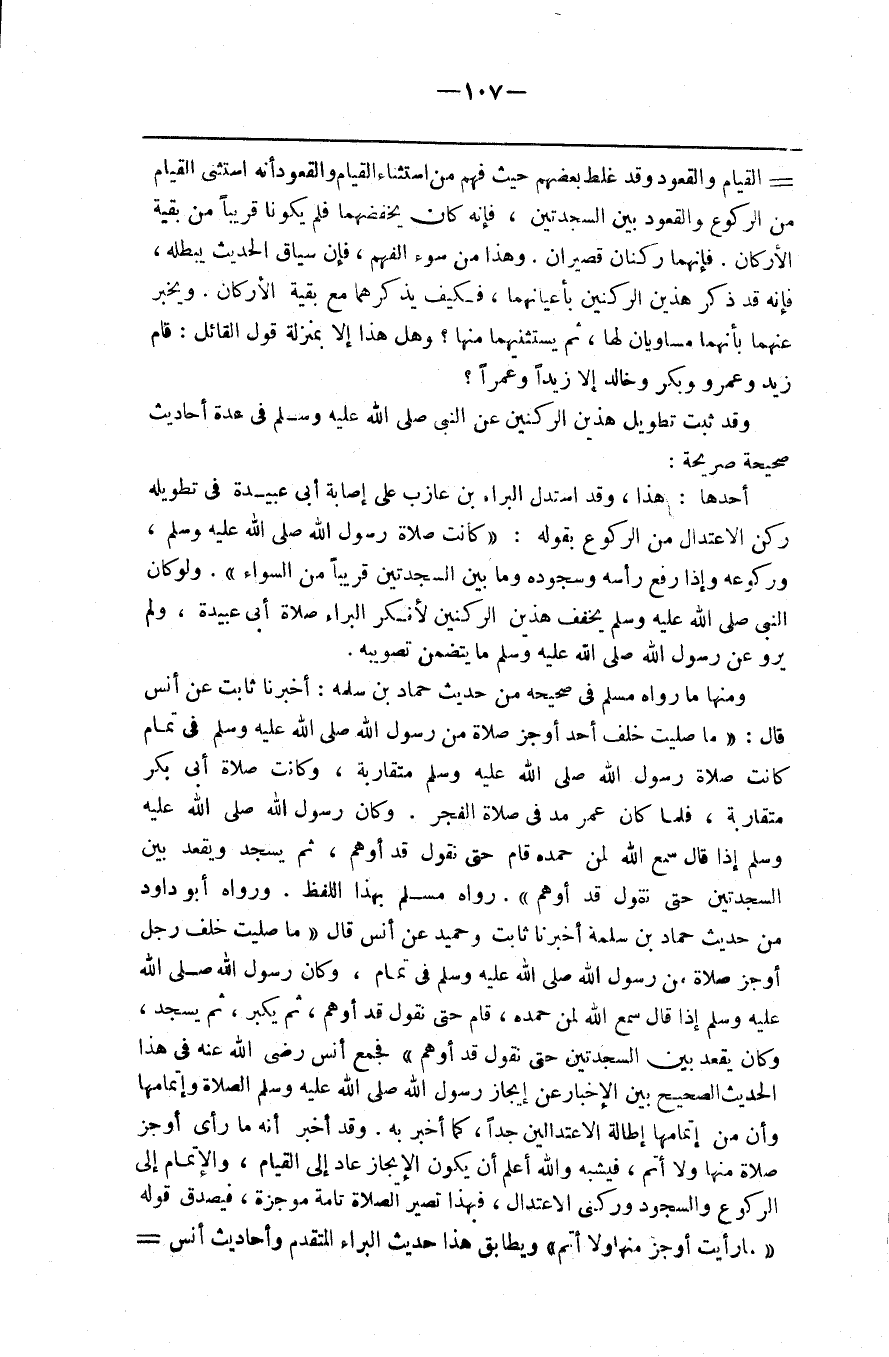 —١٠٧—
= القيام والقعود وقد غلط بعضهم حيث فهم من استثناء القيام والقعود أنه استثنى القيام
من الركوع والقعود بين السجدتين ، فإنه كان يخفضهما فلم يكونا قريباً من بقية
الأركان . فإنهما ركنان قصيران . وهذا من سوء الفهم ، فإن سياق الحديث يبطله ،
فإنه قد ذكر هذين الركنين بأعيانهما ، فكيف يذكرهما مع بقية الأركان . ويخبر
عنهما بأنهما مساويان لها ، ثم يستثنيهما منها ؟ وهل هذا إلا بمنزلة قول القائل : قام
زيد وعمرو وبكر وخالد إلا زيداً وعمراً ؟
وقد ثبت تطويل هذين الركنين عن النبى صلى الله عليه وسلم فى عدة أحاديث
صحيحة صريحة :
أحدها : هذا ، وقد استدل البراء بن عازب على إصابة أبى عبيدة فى تطويله
ركن الاعتدال من الركوع بقوله : « كانت صلاة رسول الله صلى الله عليه وسلم ،
وركوعه وإذا رفع رأسه وسجوده وما بين السجدتين قريباً من السواء » . ولو كان
النبى صلى الله عليه وسلم يخفف هذين الركنين لأنكر البراء صلاة أبى عبيدة ، ولم
يرو عن رسول الله صلى الله عليه وسلم ما يتضمن تصويبه .
ومنها ما رواه مسلم فى صحيحه من حديث حماد بن سلمه : أخبرنا ثابت عن أنس
قال : « ما صليت خلف أحد أوجز صلاة من رسول الله صلى الله عليه وسلم فى تمام
كانت صلاة رسول الله صلى الله عليه وسلم متقاربة ، وكانت صلاة أبى بكر
متقاربة ، فلما كان عمر مد فى صلاة الفجر . وكان رسول الله صلى الله عليه
وسلم إذا قال سمع الله لمن حمده قام حتى نقول قد أوهم ، ثم يسجد ويقعد بين
السجدتين حتى نقول قد أوهم » . رواه مسلم بهذا اللفظ . ورواه أبو داود
من حديث حماد بن سلمة أخبرنا ثابت وحميد عن أنس قال « ما صليت خلف رجل
أوجز صلاة من رسول الله صلى الله عليه وسلم فى تمام ، وكان رسول الله صلى الله
عليه وسلم إذا قال سمع الله لمن حمده ، قام حتى نقول قد أوهم ، ثم يكبر ، ثم يسجد ،
وكان يقعد بين السجدتين حتى نقول قد أوهم » فجمع أنس رضى الله عنه فى هذا
الحديث الصحيح بين الإخبار عن إيجاز رسول الله صلى الله عليه وسلم الصلاة وإتمامها
وأن من إتمامها إطالة الاعتدالين جداً ، كما أخبر به . وقد أخبر أنه ما رأى أوجز
صلاة منها ولا أتم ، فيشبه والله أعلم أن يكون الإيجاز عاد إلى القيام ، والإتمام إلى
الركوع والسجود وركنى الاعتدال ، فبهذا تصير الصلاة تامة موجزة ، فيصدق قوله
« ما رأيت أوجز منها ولا أتم » ويطابق هذا حديث البراء المتقدم وأحاديث أنس =